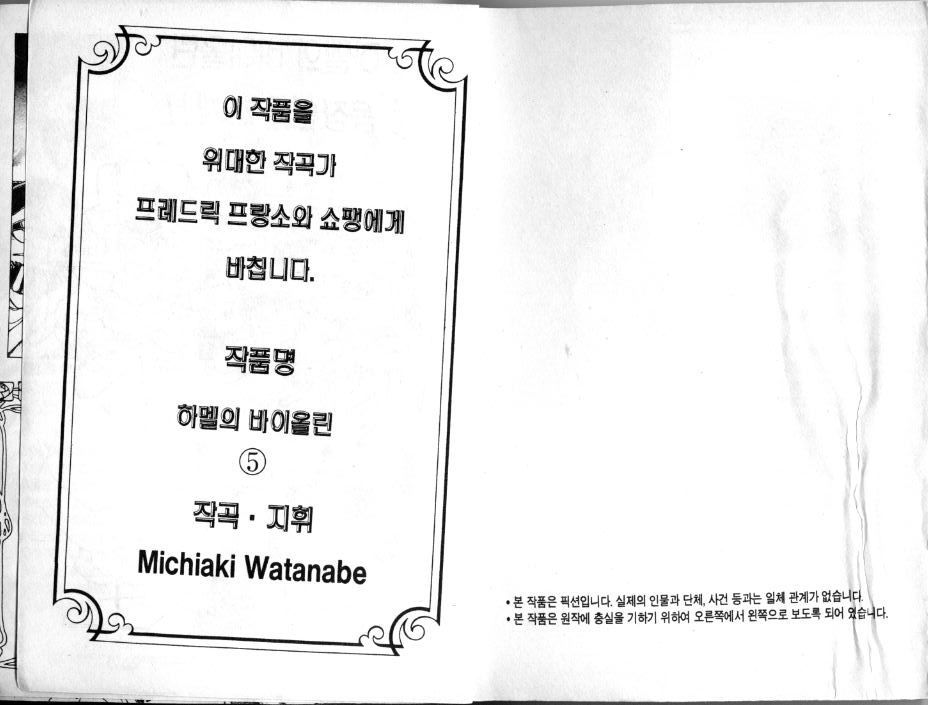 이 작품을
위대한 작곡가
프레드릭 프랑소와 쇼팽에게
바칩니다.
작품명
하멜의 바이올린
⑤
작곡 · 지휘
Michiaki Watanabe
• 본 작품은 픽션입니다. 실제의 인물과 단체, 사건 등과는 일체 관계가 없습니다.
• 본 작품은 원작에 충실을 기하기 위하여 오른쪽에서 왼쪽으로 보도록 되어 있습니다.